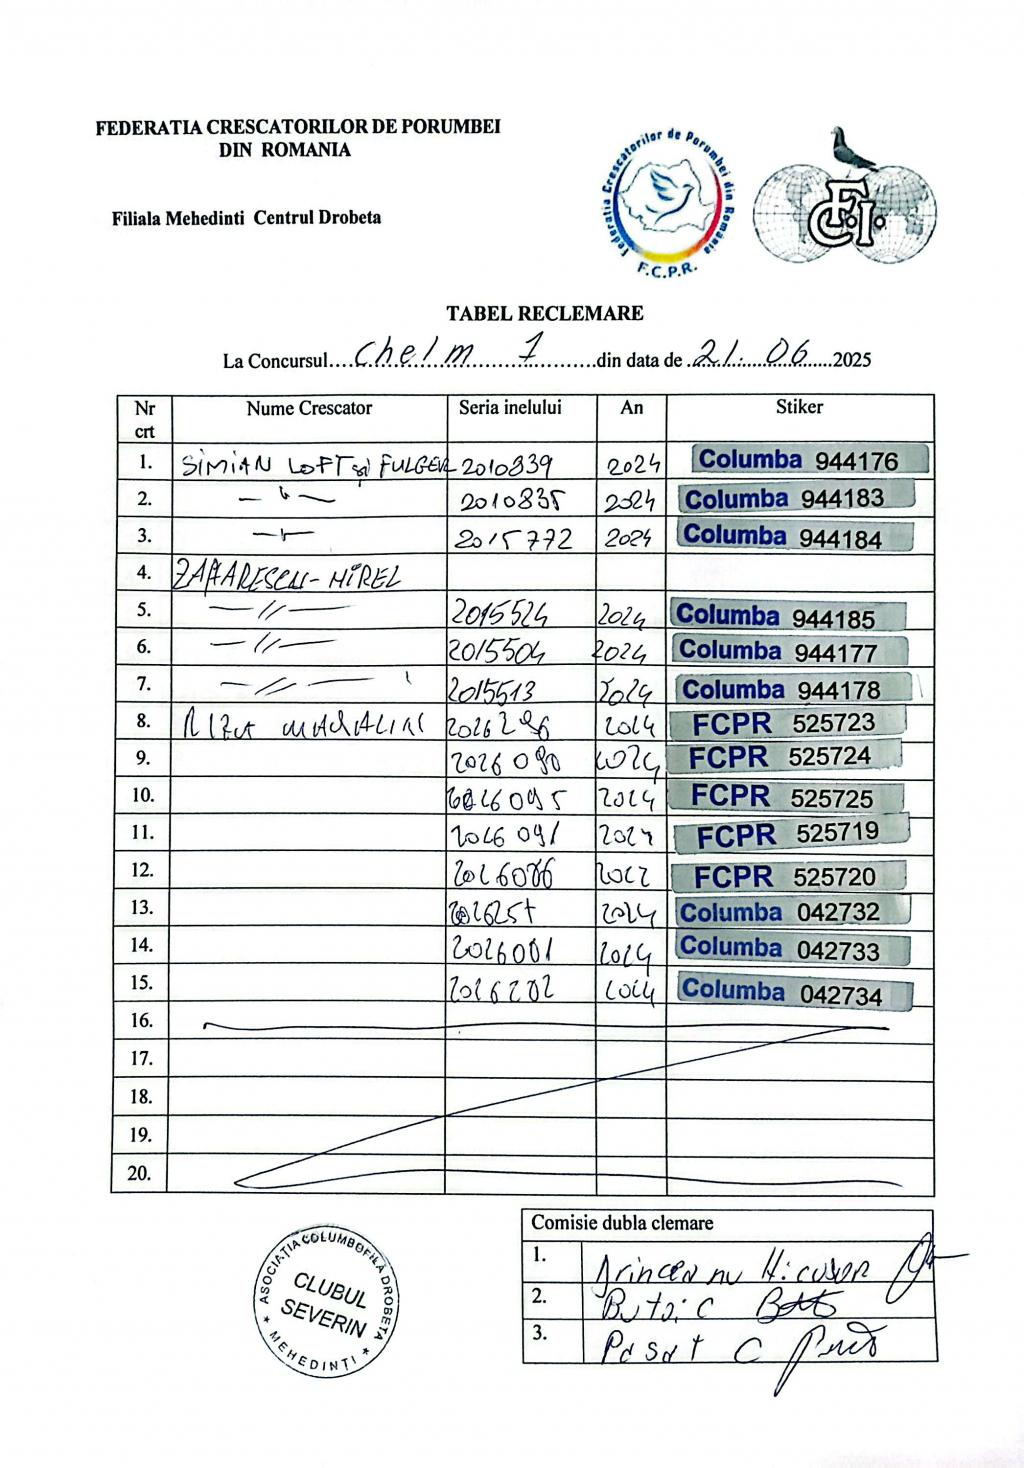 FEDERATIA CRESCATORILOR DE PORUMBEI
DIN ROMANIA
Filiala Mehedinti Centrul Drobeta
Federatia Crescatorilor de Porumbei din România
F.C.P.R.
F.C.I.
TABEL RECLEMARE
La Concursul....Chelm 1....din data de 21. 06 2025
Nr crt Nume Crescator Seria inelului An Stiker
1. SIMIAN LOFT și FULGER 2010839 2024 Columba 944176
2. — 〃 — 2010835 2024 Columba 944183
3. — 〃 — 2015772 2024 Columba 944184
4. MIREL
5. — // — 2015524 2024 Columba 944185
6. — // — 2015504 2024 Columba 944177
7. — // — 2015513 2024 Columba 944178
8. 2026296 2024 FCPR 525723
9. 2026090 2024 FCPR 525724
10. 2026095 2024 FCPR 525725
11. 2026091 2024 FCPR 525719
12. 2026086 FCPR 525720
13. 2024 Columba 042732
14. 2026001 2024 Columba 042733
15. 2026202 2024 Columba 042734
16.
17.
18.
19.
20.
Comisie dubla clemare
1.
2. Butoi C
3. Pasat C
ASOCIAȚIA COLUMBOFILĂ DROBETA
CLUBUL
SEVERIN
* MEHEDINȚI *